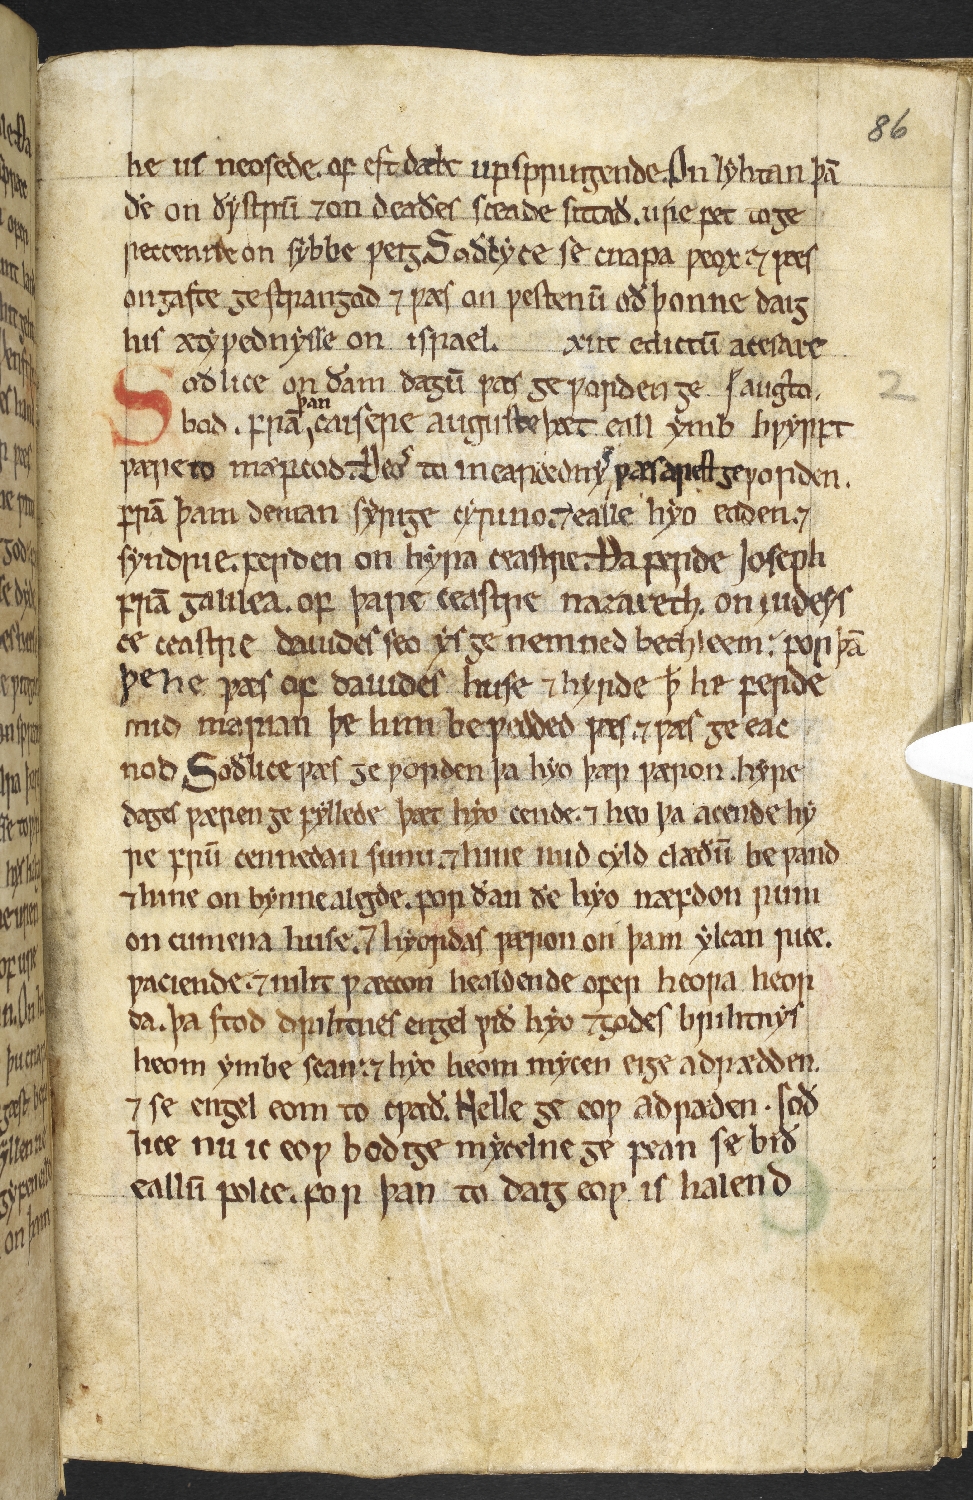 86
he us neosede. of eft dæle upspringende. On lyhtan þā
ðe on ðystrū ⁊ on deaðes sceade sittað. ure fet to ge
reccenne on sybbe weig. Soðlyce se cnapa weox. ⁊ wæs
on gaste gestrangod ⁊ wæs on westenū oð þonne daig
his ætywednysse on israel. exiit edictū a cesare
Soðlice on ðam dagū wæs geworden ge augto.
2
bod. frā þan caisere auguste þæt eall ymb hwyrft
wære to mearcod. Ðeos to mearcodnys wæs ærest geworden.
frā þam deman syrige cyrino. ⁊ ealle hyo eoden. ⁊
syndrie. ferden on hyra ceastre. Ða ferde Ioseph
frā galilea. of þare ceastre nazareth. on iudeys
ce ceastre dauides seo ys ge nemned bethleem; for þā
þe he wæs of dauides huse ⁊ hyrde þ he ferde
mid marian þe him bewedded wæs. ⁊ wæs ge eac
nod. Soðlice wæs ge worden þa hyo þær wæron. hyre
dages wæren ge fyllede þæt hyo cende. ⁊ heo þa acende hy
re frū cennedan sunu. ⁊ hine mid cyld claðū be wand
⁊ hine on bynne alegde. for ðan ðe hyo næfdon rum
on cumena huse. ⁊ hyordas wæron on þam ylcan rice.
waciende. ⁊ niht wæccen healdende ofer heora heor
da. þa stod drihtnes engel wið hyo ⁊ godes brihtnys
heom ymbe scan. ⁊ hyo heom mycen eige adrædden.
⁊ se engel eom to cwæð. Nelle ge eow adræden. soð
lice nu ic eow bodige mycelne ge fean se bið
eallū folce. for þan to daig eow is halend